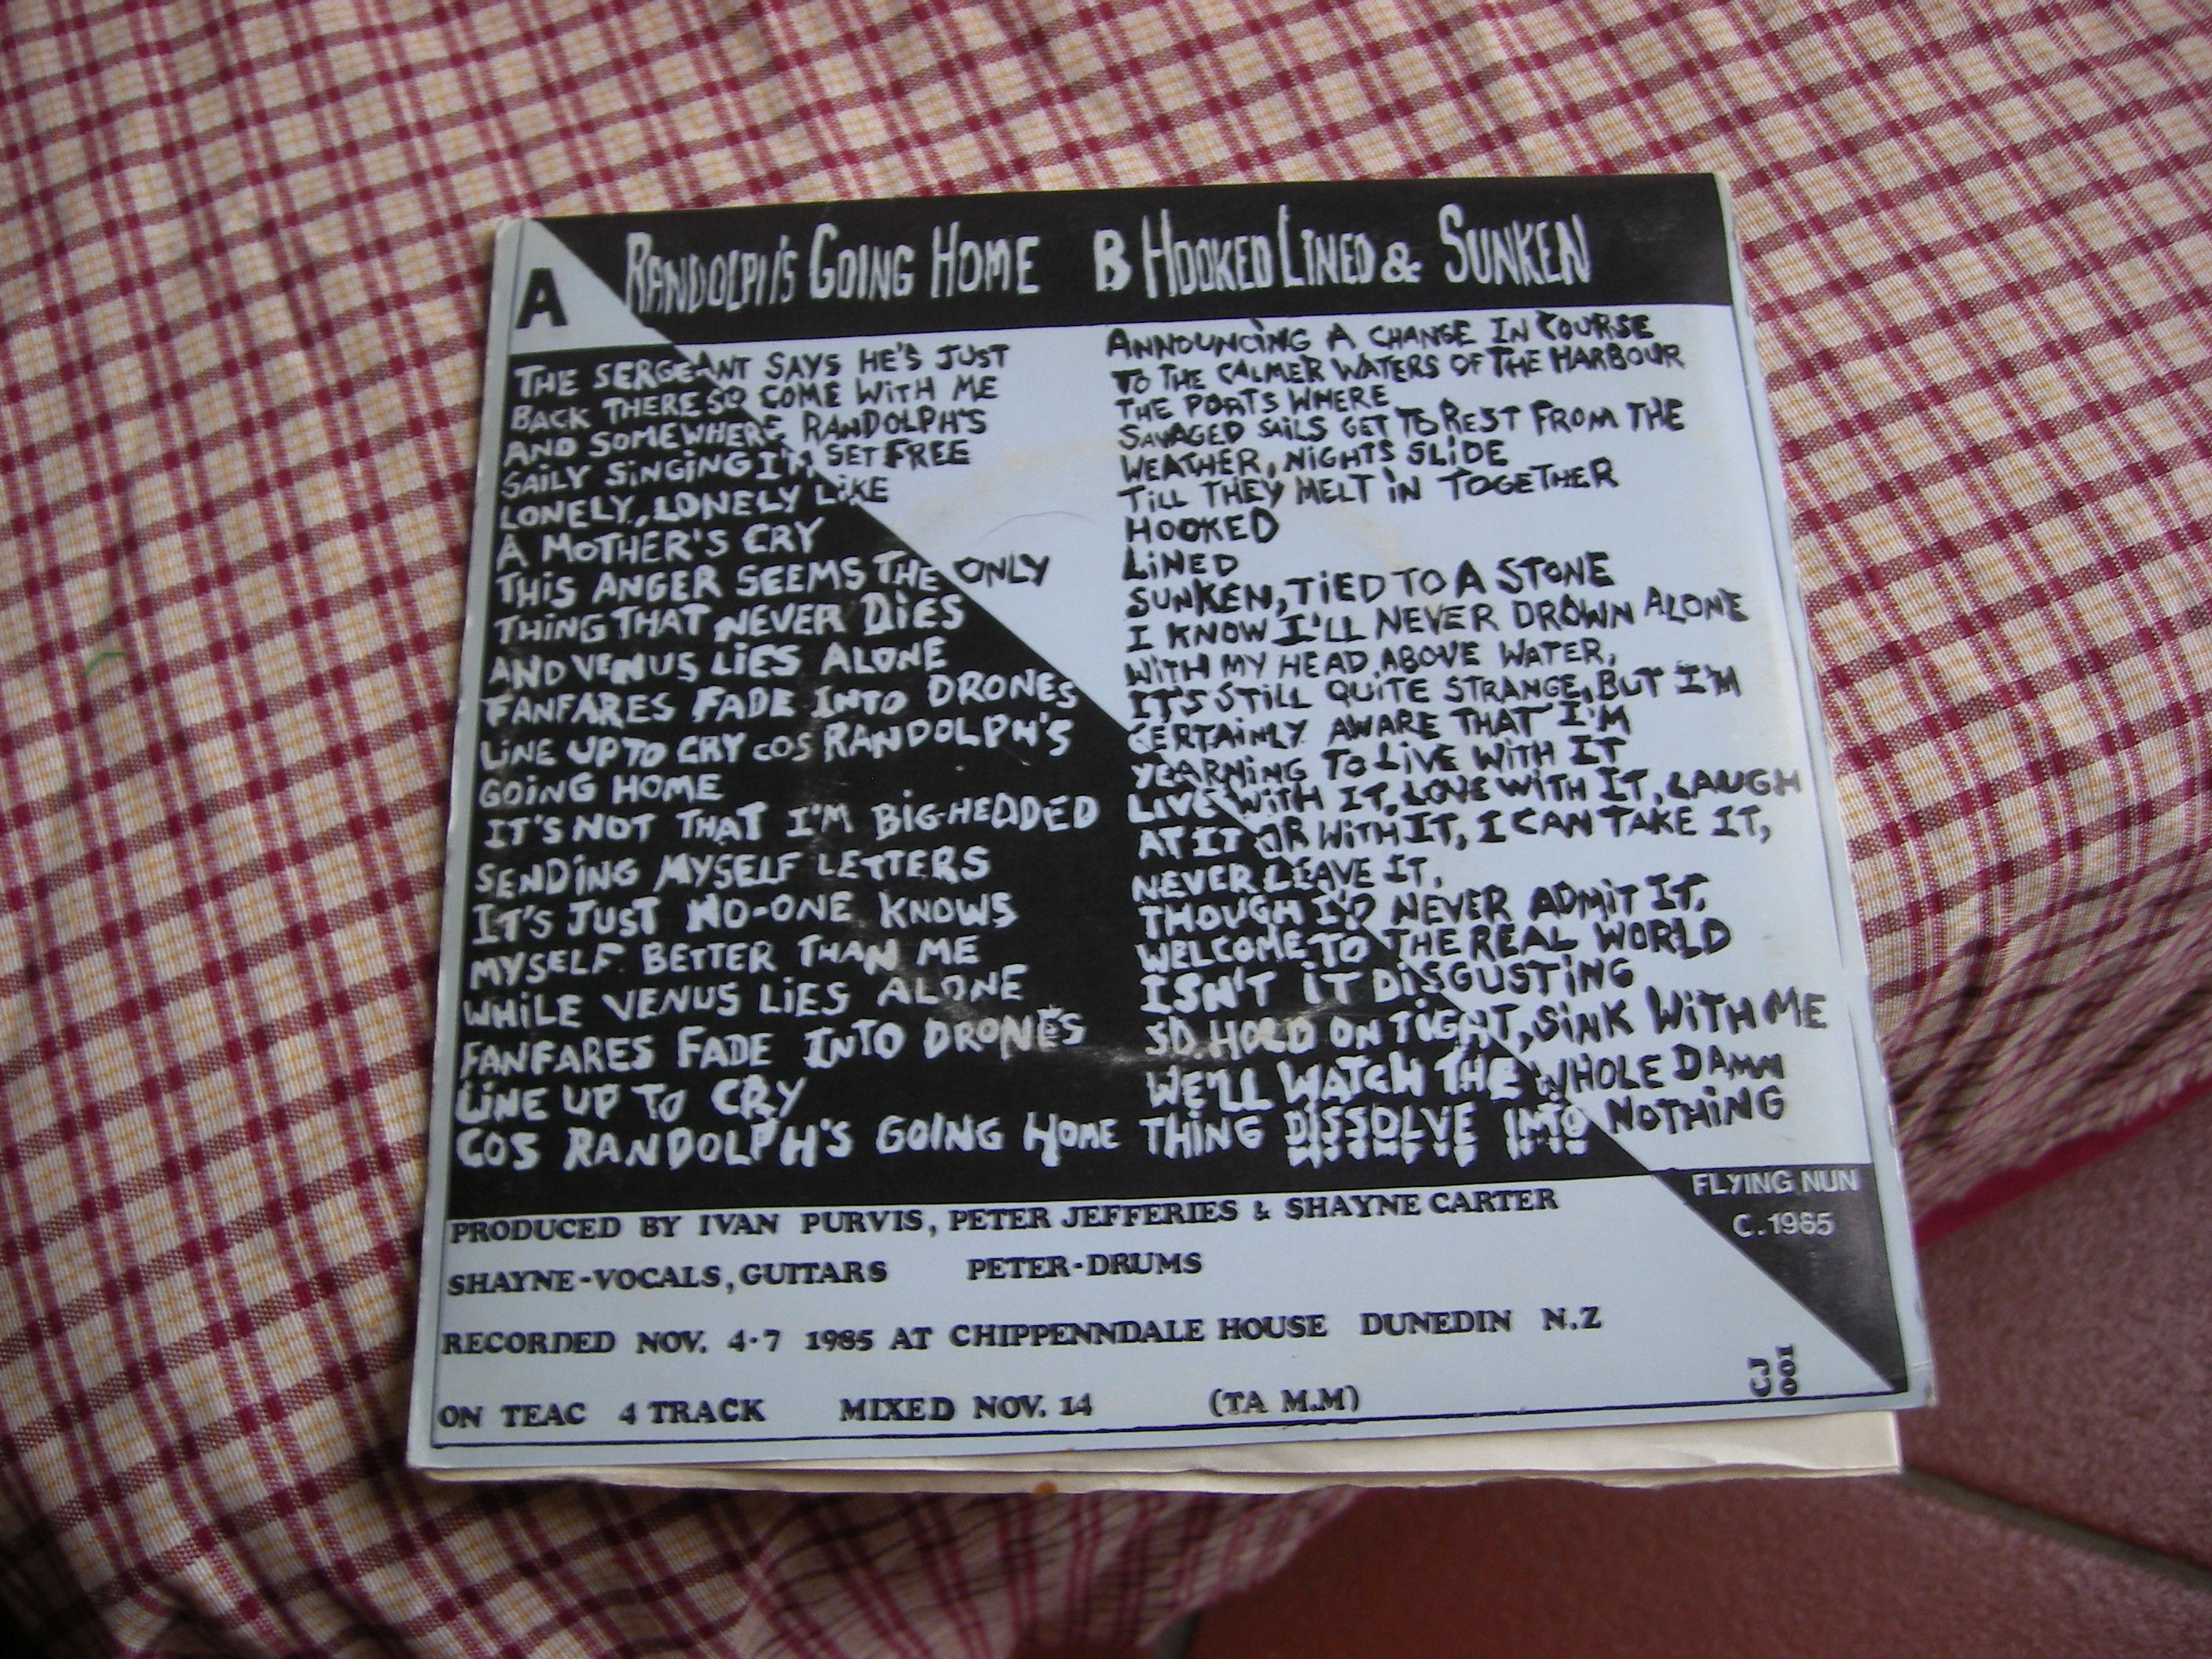 A RANDOLPH'S GOING HOME B HOOKED LINED & SUNKEN
THE SERGEANT SAYS HE'S JUST
BACK THERE SO COME WITH ME
AND SOMEWHERE RANDOLPH'S
GAILY SINGING I'M SET FREE
LONELY, LONELY LIKE
A MOTHER'S CRY
THIS ANGER SEEMS THE ONLY
THING THAT NEVER DIES
AND VENUS LIES ALONE
FANFARES FADE INTO DRONES
LINE UP TO CRY COS RANDOLPH'S
GOING HOME
IT'S NOT THAT I'M BIG-HEADED
SENDING MYSELF LETTERS
IT'S JUST NO-ONE KNOWS
MYSELF BETTER THAN ME
WHILE VENUS LIES ALONE
FANFARES FADE INTO DRONES
LINE UP TO CRY
COS RANDOLPH'S GOING HOME
ANNOUNCING A CHANGE IN COURSE
TO THE CALMER WATERS OF THE HARBOUR
THE PORTS WHERE
SAVAGED SAILS GET TO REST FROM THE
WEATHER, NIGHTS SLIDE
TILL THEY MELT IN TOGETHER
HOOKED
LINED
SUNKEN, TIED TO A STONE
I KNOW I'LL NEVER DROWN ALONE
WITH MY HEAD ABOVE WATER,
IT'S STILL QUITE STRANGE, BUT I'M
CERTAINLY AWARE THAT I'M
YEARNING TO LIVE WITH IT
LIVE WITH IT, LOVE WITH IT, LAUGH
AT IT OR WITH IT, I CAN TAKE IT,
NEVER LEAVE IT,
THOUGH I'D NEVER ADMIT IT,
WELCOME TO THE REAL WORLD
ISN'T IT DISGUSTING
SO HOLD ON TIGHT, SINK WITH ME
WE'LL WATCH THE WHOLE DAMN
THING DISSOLVE INTO NOTHING
FLYING NUN
C. 1985
PRODUCED BY IVAN PURVIS, PETER JEFFERIES & SHAYNE CARTER
SHAYNE-VOCALS, GUITARS PETER-DRUMS
RECORDED NOV. 4-7 1985 AT CHIPPENNDALE HOUSE DUNEDIN N.Z
ON TEAC 4 TRACK MIXED NOV. 14 (TA M.M)
CJ
001